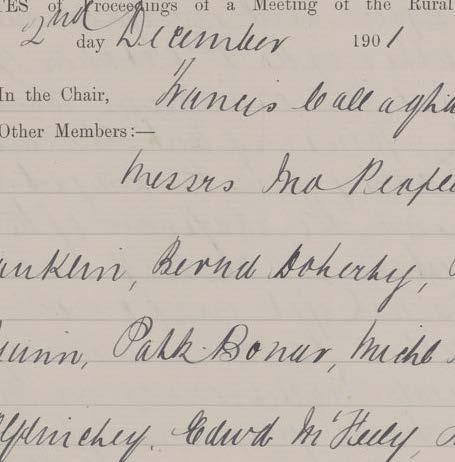 TES of Proceedings of a Meeting of the Rural
2nd day December 1901
In the Chair, Francis Callagha
Other Members:—
Messrs Jno Peopl
anklin, Bernd Doherty,
uinn, Patk Bonar, Michl
Edwd McFeely,